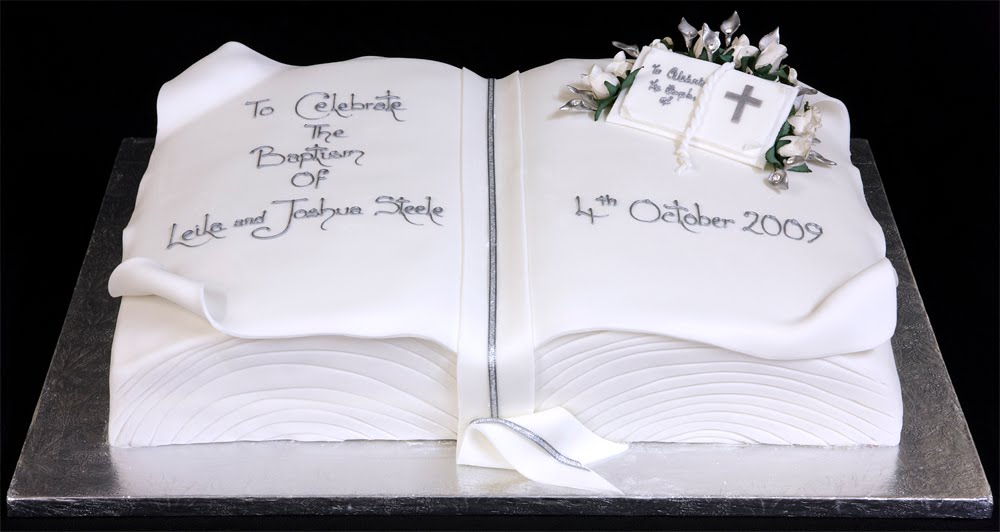 To Celebrate
The
Baptism
Of
Leila and Joshua Steele
To Celebrate
The Baptism
Of
4th October 2009